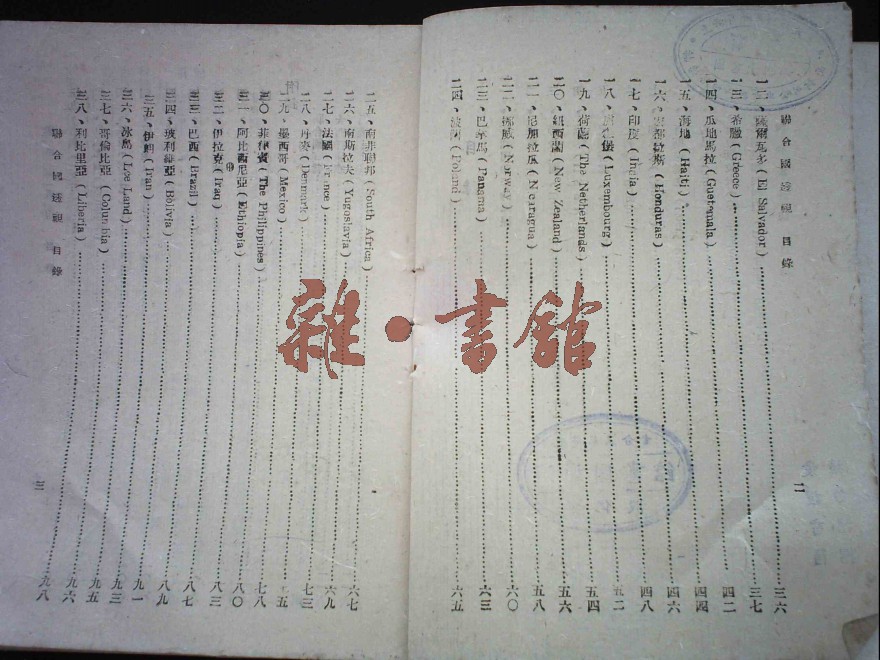 聯合國透視 目錄
一二、薩爾瓦多(El Salvador)……三六
一三、希臘(Greece)……三七
一四、瓜地馬拉(Guetemala)……四二
一五、海地(Haiti)……四四
一六、洪都拉斯(Honduras)……四六
一七、印度(India)……四八
一八、盧森堡(Luxembourg)……五二
一九、荷蘭(The Netherlands)……五四
二〇、紐西蘭(New Zealand)……五六
二一、尼加拉瓜(Nicaragua)……五八
二二、挪威(Norway)……六〇
二三、巴拿馬(Panama)……六三
二四、波蘭(Poland)……六五
二
二五、南非聯邦(South Africa)……六七
二六、南斯拉夫(Yugoslavia)……六九
二七、法國(France)……
二八、丹麥(Denmark)……七三
二九、墨西哥(Mexico)……五
三〇、菲律賓(The Philippines)……七八
三一、阿比西尼亞(Ethiopia)……八〇
三二、伊拉克(Iraq)……八三
三三、巴西(Brazil)……八七
三四、玻利維亞(Bolivia)……八九
三五、伊朗(Iran)……九一
三六、冰島(Lce Land)……九三
三七、哥倫比亞(Columbia)……九五
三八、利比里亞(Liberia)……九六
九八
聯合國透視 目錄
三
雜·書館